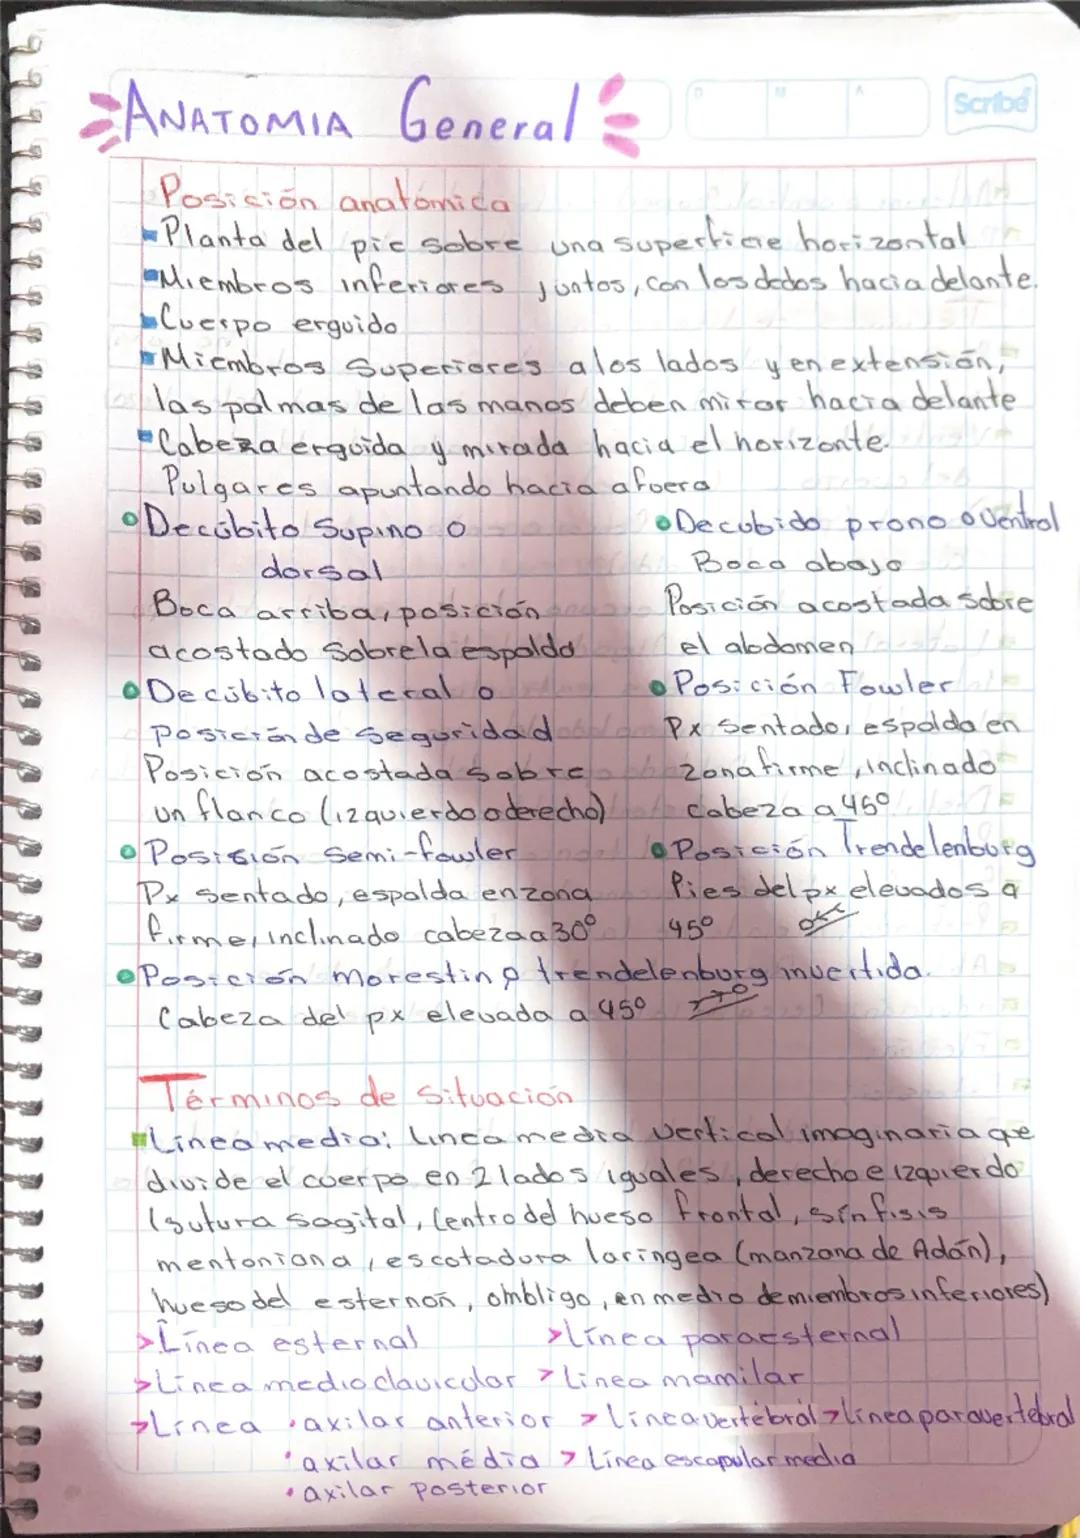 ANATOMIA General
D M A
Scribe
Posición anatómica
Planta del pie sobre una superficie horizontal
Miembros inferiores juntos, con los dedos hacia delante.
Cuerpo erguido
Miembros Superiores a los lados y en extensión,
las palmas de las manos deben mirar hacia delante
Cabeza erguida y mirada hacia el horizonte.
Pulgares apuntando hacia afuera
Decúbito Supino o
dorsal
Boca arriba, posición
acostado sobre la espalda
Decubido prono o Ventral
Boca abajo
Posición acostada sobre
el abdomen
Decúbito lateral o
posición de seguridad
Posición acostada sobre
un flanco (izquierdo o derecho)
Posición Fowler
Px sentado, espalda en
zona firme, inclinado
cabeza a 45°
Posición Semi-fowler
Px sentado, espalda en zona
firme, inclinado cabeza a 30°
Posición Trendelenburg
Pies del px elevados a
45°
Posición morestin o trendelenburg invertida.
Cabeza del px elevada a 45°
Términos de situación
Línea media: Línea media vertical imaginaria que
divide el cuerpo en 2 lados iguales, derecho e izquierdo
(sutura sagital, Centro del hueso frontal, sínfisis
mentoniana, escotadura laríngea (manzana de Adán),
hueso del esternón, ombligo, en medio de miembros inferiores)
>Línea esternal >Línea paraesternal
>Línea medioclavicular >Línea mamilar
>Línea • axilar anterior >Línea vertebral >línea paravertebral
• axilar média >Línea escapular media
• axilar posterior